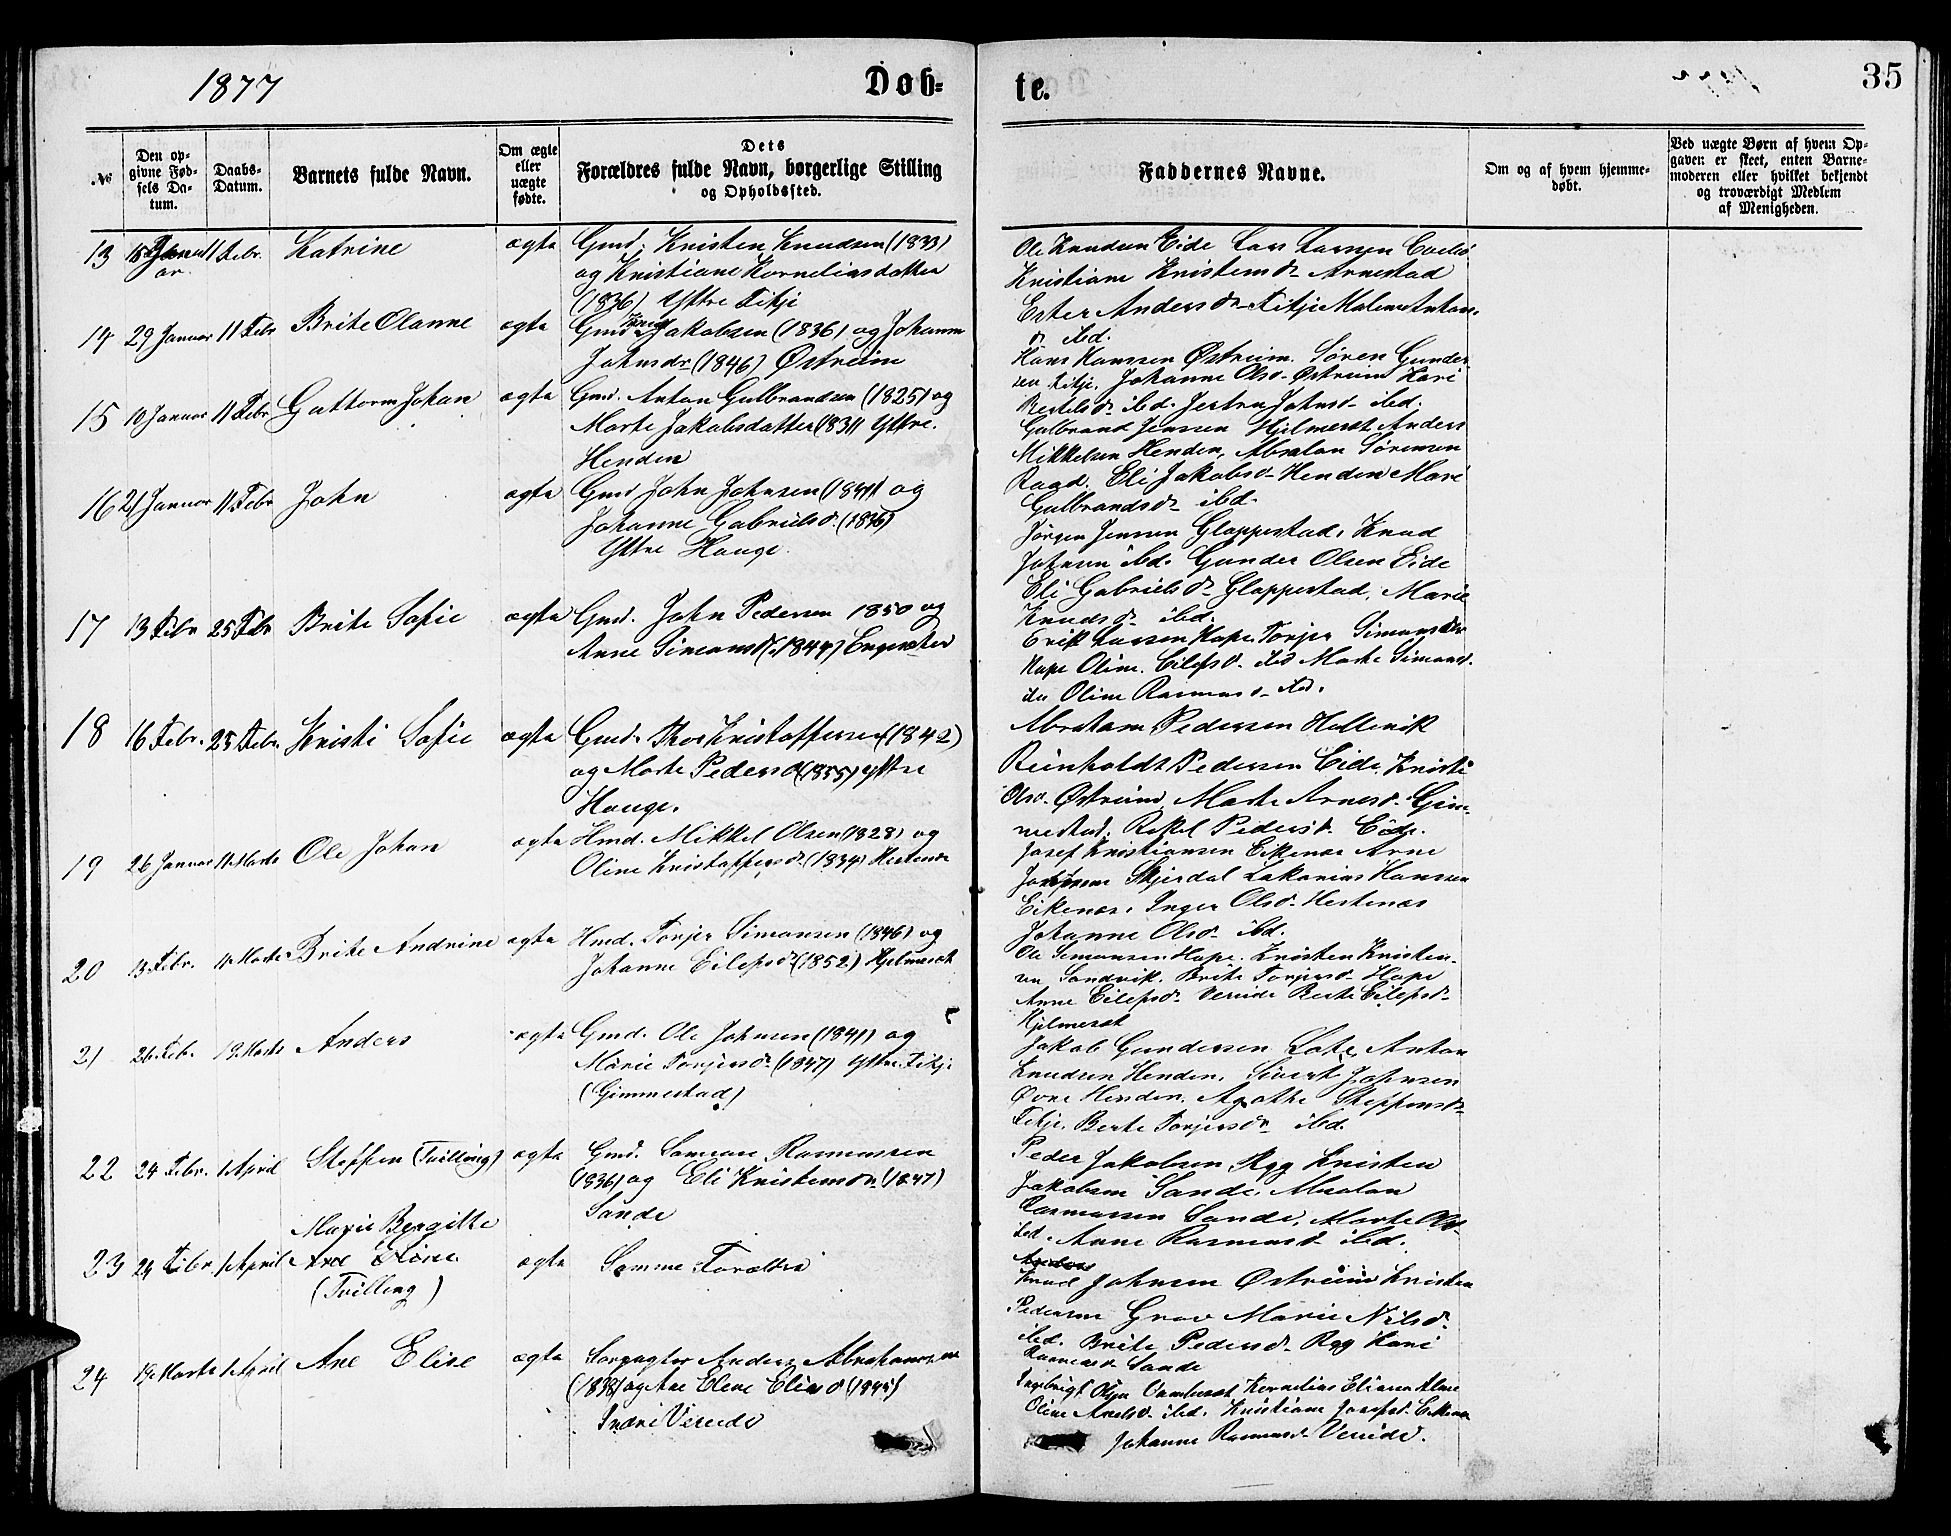 1877
Døb-
te.
35
№
Den op-
givne Fød-
sels Da-
tum.
Daabs-
Datum.
Barnets fulde Navn.
Om ægte
eller
uægte
fødte.
Dets
Forældres fulde Navn, borgerlige Stilling
og Opholdssted.
Faddernes Navne.
Om og af hvem hjemme-
døbt.
Ved uægte Børn af hvem Op-
gaven er skeet, enten Barne-
moderen eller hvilket bekjendt
og troværdigt Medlem
af Menigheden.
13 Januar 11 Febr. Katrine ægte Gmd. Kristen Knudsen (1833)
og Kristiane Korneliusdatter
(1836) Ytre Fitje
Ole Knudsen Eide Lars Larsen
Kristiane Kristensdr Arnestad
Ester Andersdr Fitje Malene Antons.
dr ibd.
14 29 Januar 11 Febr Brite Olanne ægte Gmd Jakobsen (1836) og Johanne
Johnsdr (1846) Østreim
Hans Hanssen Østreim. Søren Gunder
sen Fitje. Johanne Olsd. Østreim Kari
Bertelsdr ibd. Johnsd. ibd.
15 10 Januar 11 Febr Guttorm Johan ægte Gmd. Anton Gulbrandsen (1825) og
Marte Jakobsdatter (1831) Yttre.
Henden
Gulbrand Jenssen Hjelmeset Anders
Mikkelsen Henden, Absalon Sørensen
Raad. Eli Jakobsd. Henden Marie
Gulbrandsdr ibd.
16 21 Januar 11 Febr John ægte Gmd John Johnsen (1841) og
Johanne Gabrielsd. (1836)
Yttre Hauge.
Jørgen Jenssen Gloppestad, Knud
Johnsen ibd. Gunder Olsen Eide
Eli Gabrielsdr Gloppestad, Marie
Knudsdr ibd.
17 13 Febr 25 Febr Brite Sofie ægte Gmd. John Pedersen 1850 og
Anne Simonsdr (1844) Engesæter
Erik Larsen Hope Torjer Simonsen
Hope Oline Eilefsd. ibd Marte Simonsd.
ibd Oline Rasmusd. ibd.
18 16 Febr. 25 Febr. Kristi Sofie ægte Gmd. Thor Kristoffersen (1842)
og Marte Pedersdr (1855) Yttre
Hauge.
Abraham Pedersen Hellevik
Reinholdt Pedersen Eide, Kristi
Olsd. Østreim, Marte Arnesd. Gim-
mestad. Rakel Pedersdr Eide.
19 26 Januar 11 Marts Ole Johan ægte Hmd. Mikkel Olsen (1828) og
Oline Kristoffersdr (1834) Hestenæs
Josef Kristiansen Eikenæs Arne
Skjerdal Zakarias Hanssen
Eikenæs, Inger Olsdr Hestenæs
Johanne Olsdr ibd.
20 13 Febr. 11 Marts Brite Andrine ægte Hmd. Torjer Simonsen (1846) og
Johanne Eilefsdr (1852) Hjelmeset
Ole Simonsen Hope. Kristen Kristen-
sen Sandvik. Brite Torjersd. Hope
Anne Eilefsdr Vereide Berte Eilefsdr
Hjelmeset
21 26 Febr. 19 Marts Anders ægte Gmd. Ole Johnsen (1841) og
Marie Torjersdr (1847) Yttre Fitje
(Gimmestad)
Jakob Gundersen Lote, Anton
Knudsen Henden. Sivert Johnsen
Øvre Henden. Agathe Steffensdr
Fitje. Berte Torjersdr ibd.
22 24 Febr. 1 April Steffen (Tvilling) ægte Gmd. Rasmussen
(1836) og Eli Kristensdr (1847)
Sande
Peder Jakobsen Ryg Kristen
Jakobsen Sande, Absalon
Rasmussen Sande, Marte Olsdr
ibd. Anne Rasmusd. ibd.
23 24 Febr. 1 April Marie Bergitte
(Tvilling)
ægte Samme Forældre
Knud Johnsen Østreim Kristen
Pedersen Grov Marie Nilsdr
ibd. Brite Pedersdr Ryg Kari
Sande
24 19 Marts 1 April Ane Elise ægte Anders Abrahamsen
(1838) og Ane Elene Eliasd (1845)
Indre Vereide
Ingebrigt Olsen Kornelius Eliasen
Oline ibd. Kristiane Josefsd. Eikenæs
Johanne Rasmusd. Vereide.